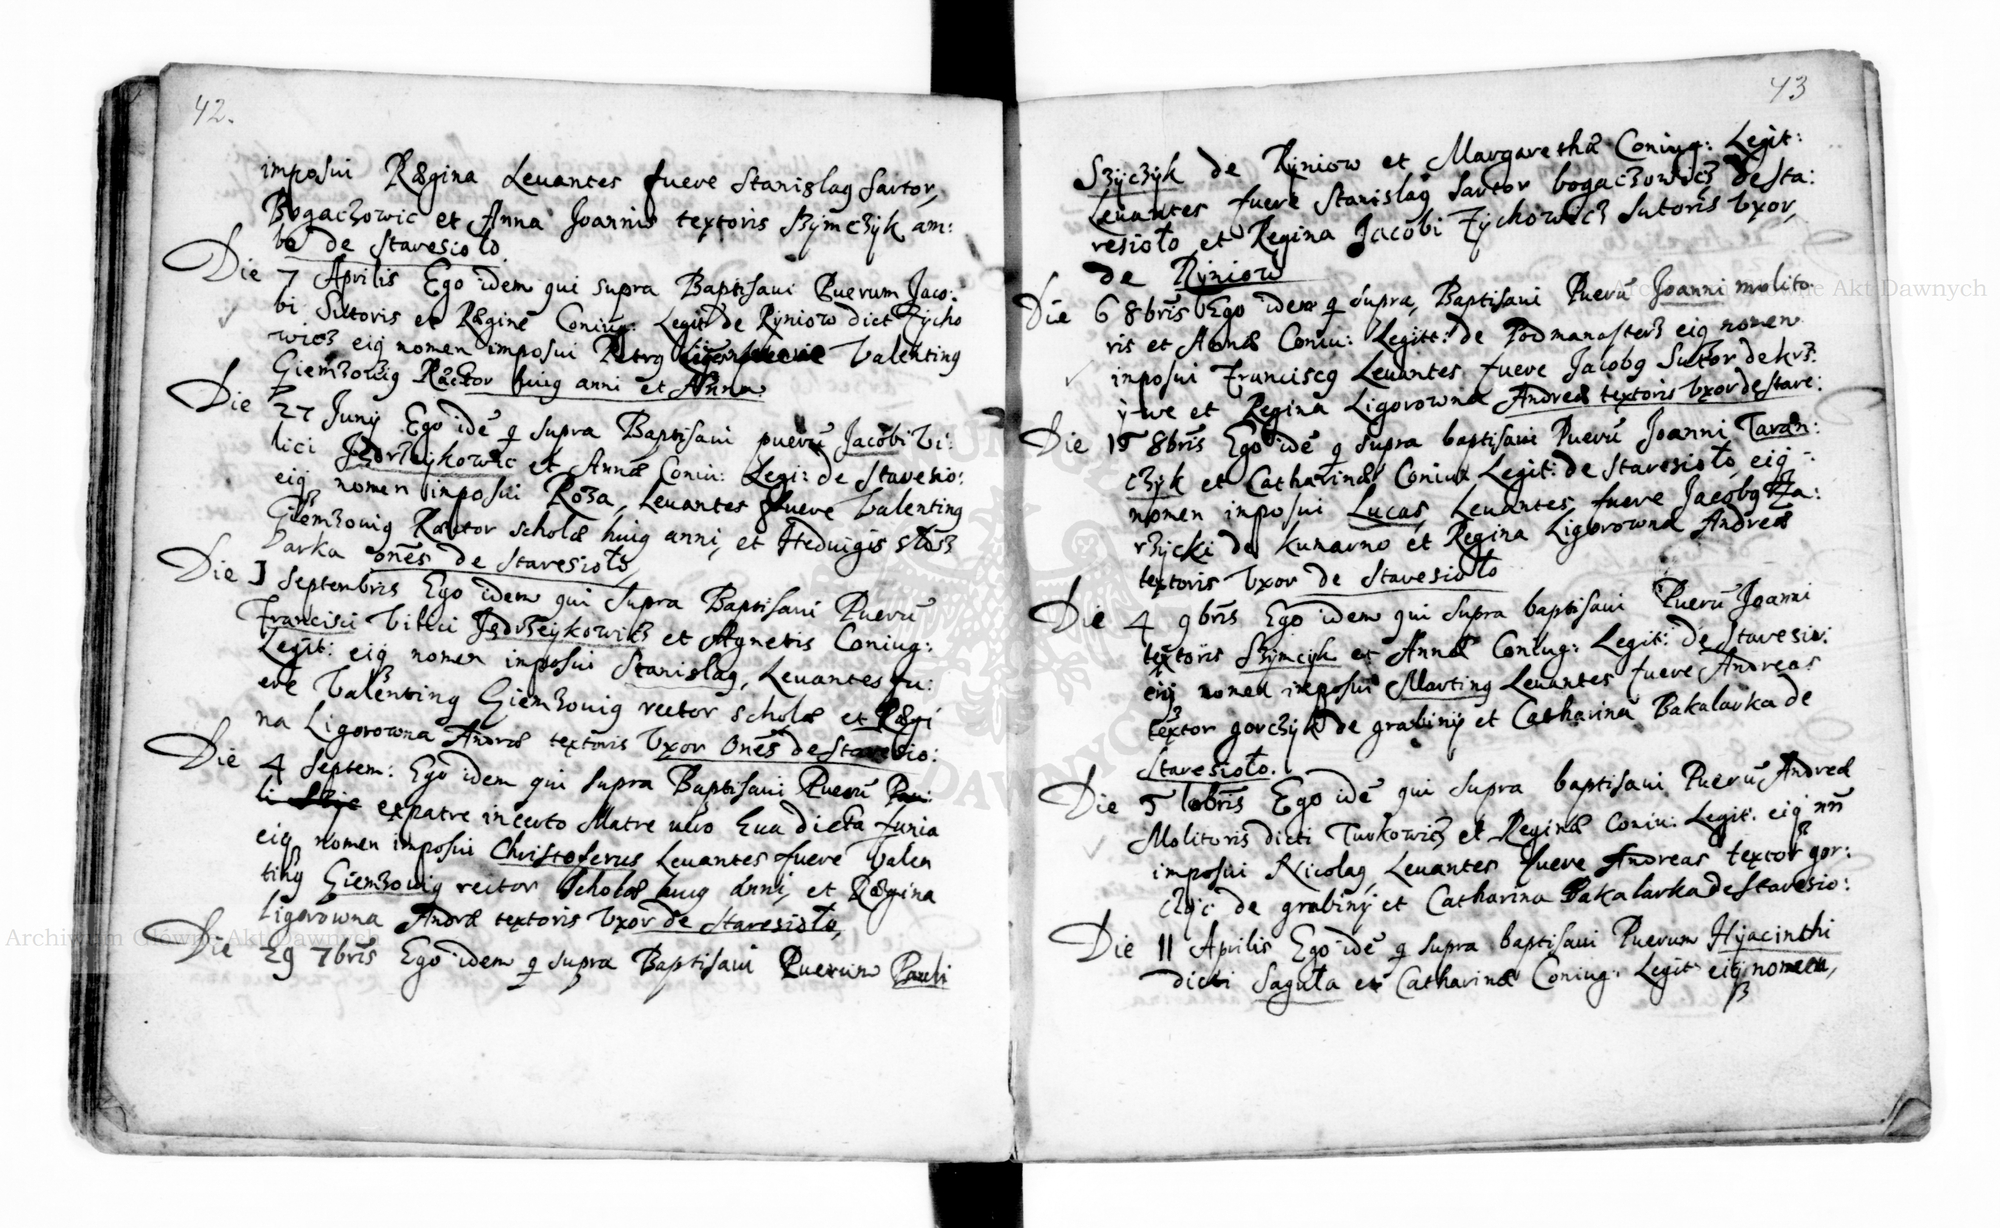 42.
imposui Rægina Leuantes fuere Stanislaꝯ Sartor,
Bogaczowic et Anna Joannis textoris Szÿmczÿk am:
bo de Staresioło.
Die 7 Aprilis Ego idem qui supra Baptisaui Puerum Jaco:
bi Sutoris et Ræginæ Coniug: Legit: de Rÿniow dict Zÿcho
wicz eiꝯ nomen imposui Petrꝯ Valentinꝯ
Giemzowiꝯ Ræctor huiꝯ anni et Anna.
Die 27 Junij Ego idē q supra Baptisaui puerū Jacobi Vi:
lici Jędrzeÿkowic et Annæ Coniu: Legi: de Staresio:
eiꝯ nomen imposui Roza, Leuantes fuere Valentinꝯ
Giemzowiꝯ Ræctor scholæ huiꝯ anni, et Heduigis
barka onēs de Staresioło,
Die 1 Septembris Ego idem qui supra Baptisaui Puerū
Francisci Vilici Jędrzeÿkowicz et Agnetis Coniug:
Legit: eiꝯ nomen imposui Stanislaꝯ, Leuantes fu:
ere Valentinꝯ Giemzowiꝯ rector scholæ et Rægi
na Ligorowna Andræ textoris Vxor Onēs de Staresio:
Die 4 Septem: Ego idem qui supra Baptisaui Puerū Pau:
li ex patre incerto Matre uero Eua dicta funia
eiꝯ nomen imposui Christoferus Leuantes fuere Valen
tinꝯ Giemzowiꝯ rector Scholæ huiꝯ anni, et Rægina
Ligorowna Andræ textoris Vxor de Staresioło,
Die 29 7bris Ego idem q supra Baptisaui Puerum Pauli
43
Szÿczÿk de Rÿniow et Margarethæ Coniug: Legit:
Leuantes fuere Stanislaꝯ Sartor bogaczowicz de sta:
resioło et Regina Jacobi Zÿchowicz Sutoris Vxor,
de Rÿniow
Die 6 8bris Ego idem q supra, Baptisaui Puerū Joanni molito
ris et Annæ Coniu: Legitt: de Podmanasterz eiꝯ nomen
imposui Franciscꝯ Leuantes fuere Jacobꝯ Sutor de krz:
ÿwe et Regina Ligorowna Andreæ textoris Vxor de stare:
Die 15 8bris Ego idē q supra baptisaui Puerū Joanni Taran:
czÿk et Catharinæ Coniu Legit: de Staresioło, eiꝯ
nomen imposui Lucas, Leuantes fuere Jacobꝯ Za:
rzÿcki de kunarno et Regina Ligorowna Andreæ
textoris Vxor de Staresioło
Die 4 9bris Ego idem qui supra baptisaui Puerū Joanni
textoris Szÿmcÿk et Annæ Coniug: Legit: de Staresio:
eiꝯ nomen imposui Martinꝯ Leuantes fuere Andreas
textor gorczÿk de grabinÿ et Catharina Bakalarka de
Staresioło.
Die 5 10bris Ego idē qui supra baptisaui Puerū Andreæ
Molitoris dicti Turkowicz et Reginæ Coniu: Legit: eiꝯ nn̄
imposui Nicolaꝯ, Leuantes fuere Andreas textor gor:
czÿc de grabinÿ et Catharina Bakalarka de Staresio:
Die 11 Aprilis Ego idē q supra baptisaui Puerum Hÿacinthi
dicti Saguła et Catharinæ Coniug: Legit eiꝯ nomen,
Archiwum Główne Akt Dawnych
Archiwum Główne Akt Dawnych